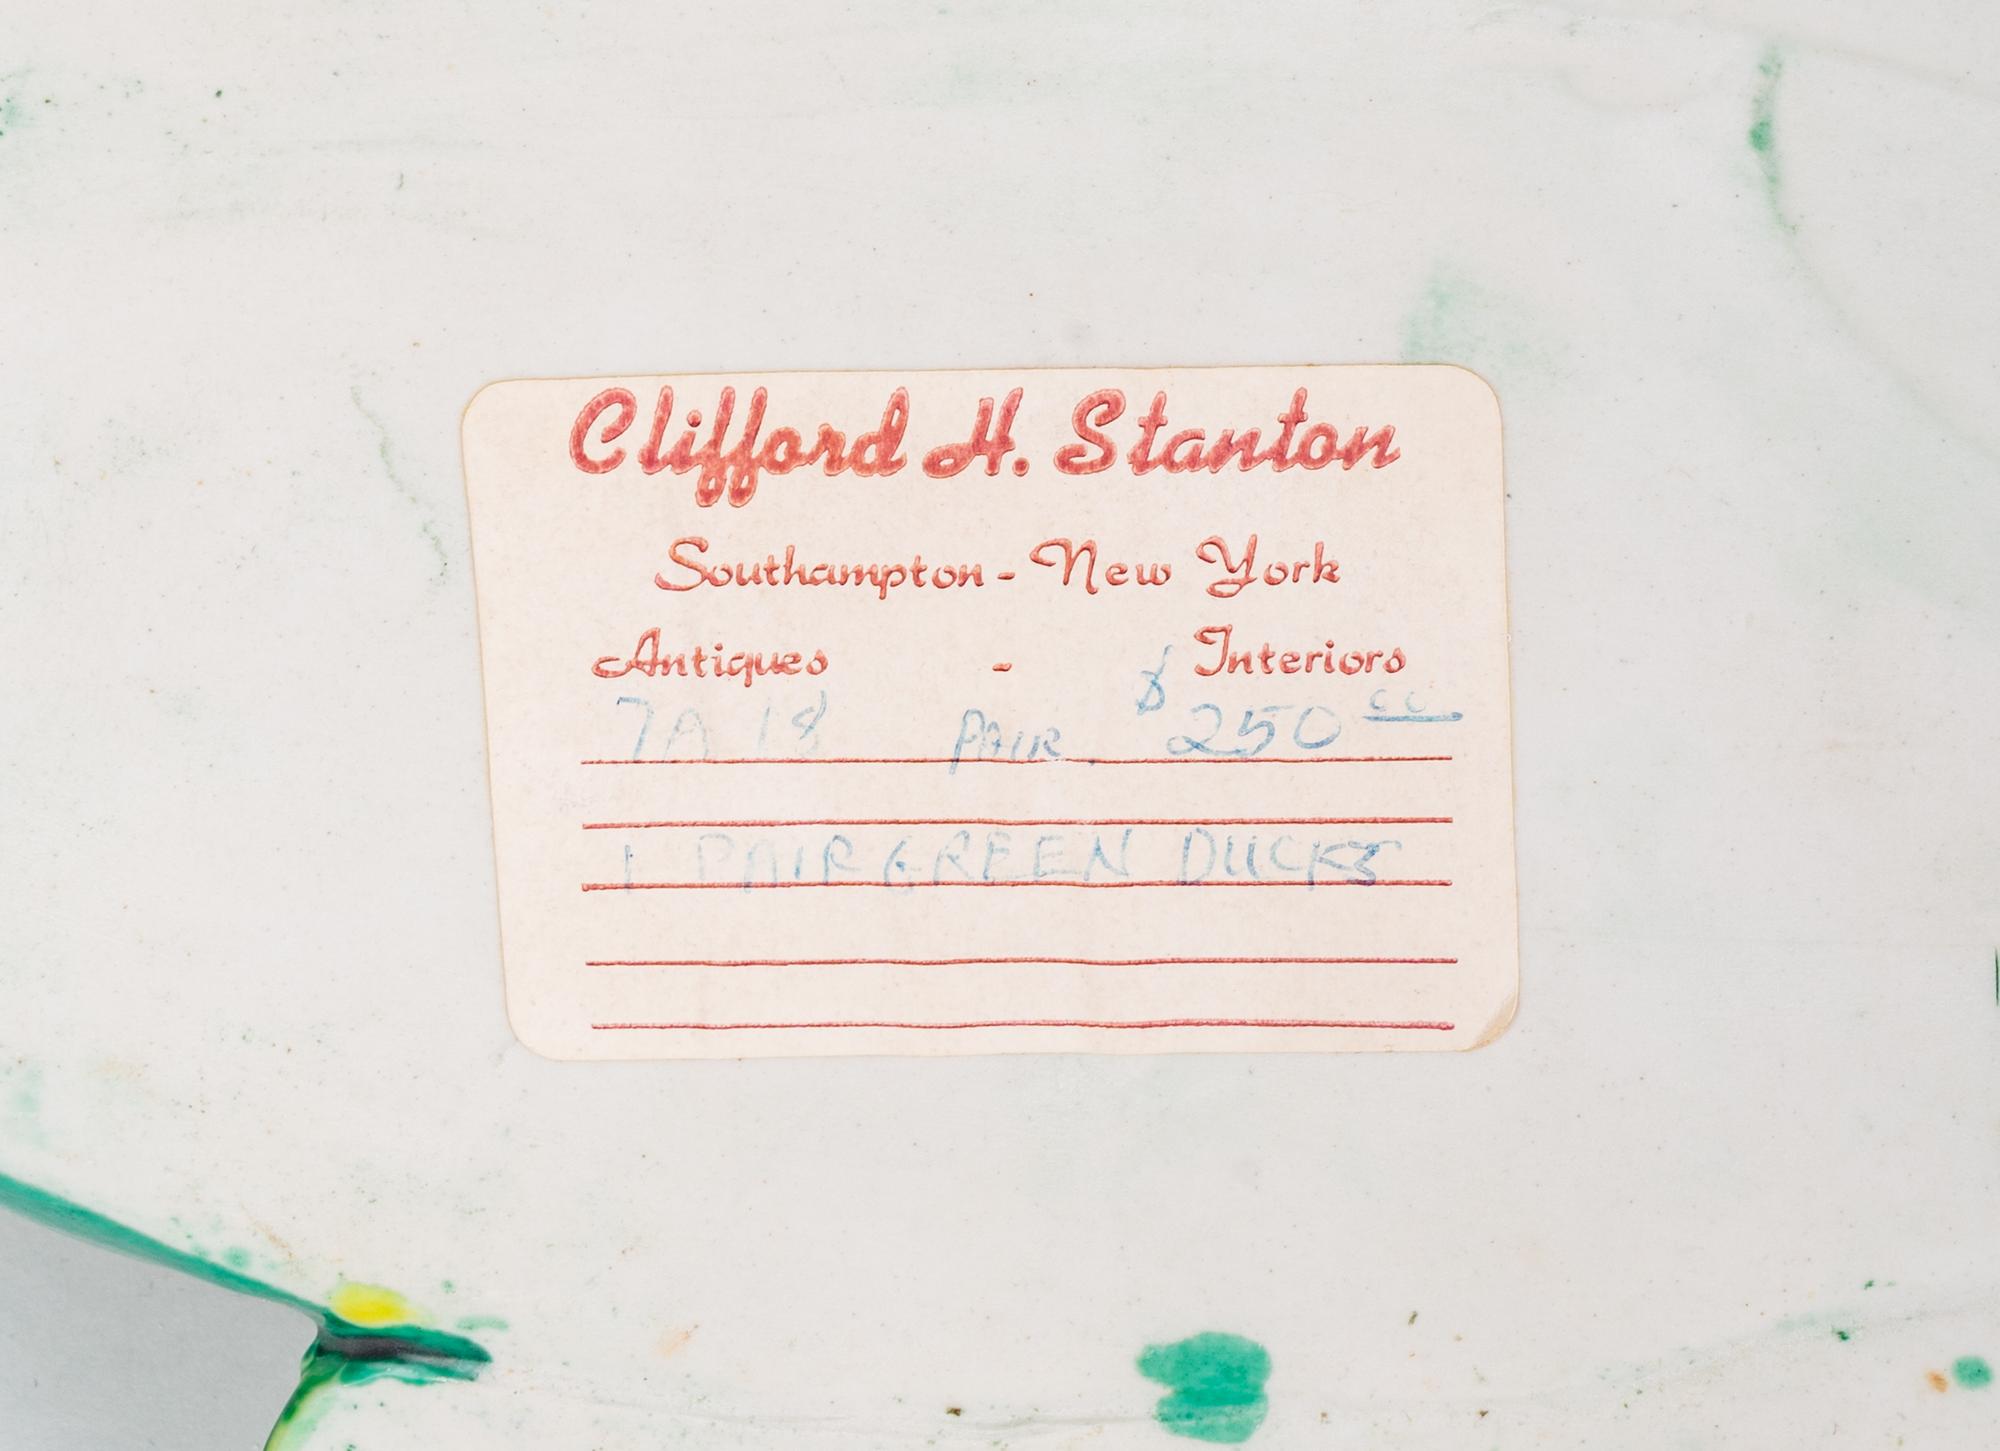 Clifford H. Stanton
Southampton - New York
Antiques - Interiors
7A 18 PAIR. $250 00
1 PAIR GREEN DUCKS